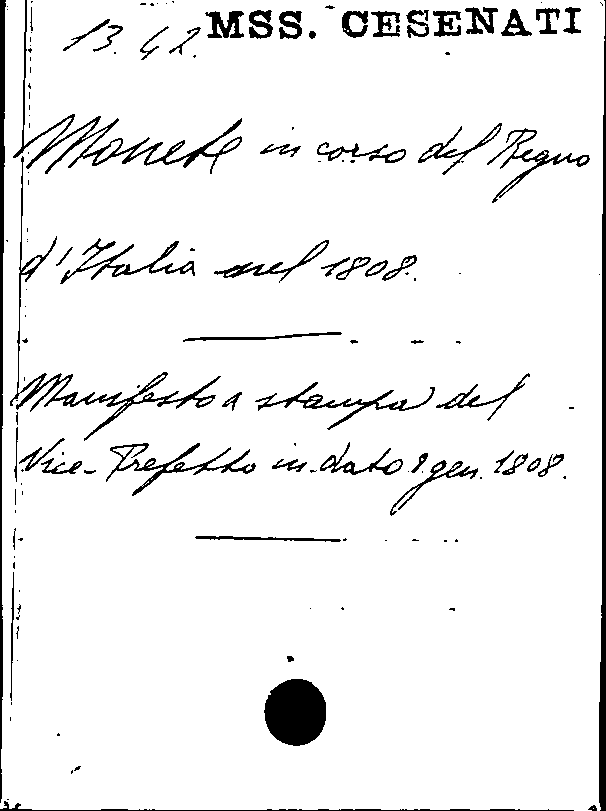 13.42. MSS. CESENATI
Monete in corso del Regno
d'Italia nel 1808.
Manifesto a stampa del
Vice-Prefetto in dato 8 gen. 1808.